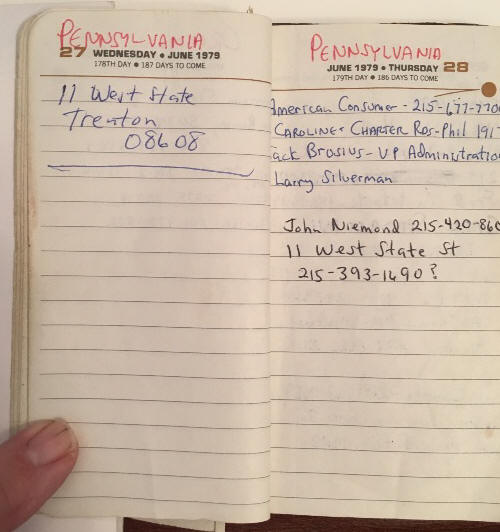 PENNSYLVANIA
27 WEDNESDAY • JUNE 1979
178TH DAY • 187 DAYS TO COME
11 West State
Trenton
08608
PENNSYLVANIA
JUNE 1979 • THURSDAY 28
179TH DAY • 186 DAYS TO COME
American Consumer - 215-677-770
CAROLINE+ CHARTER Ros-Phil 191
ack Brosius - VP Administratio
Larry Silverman
John Niemond 215-420-860
11 West State St
215-393-1490?